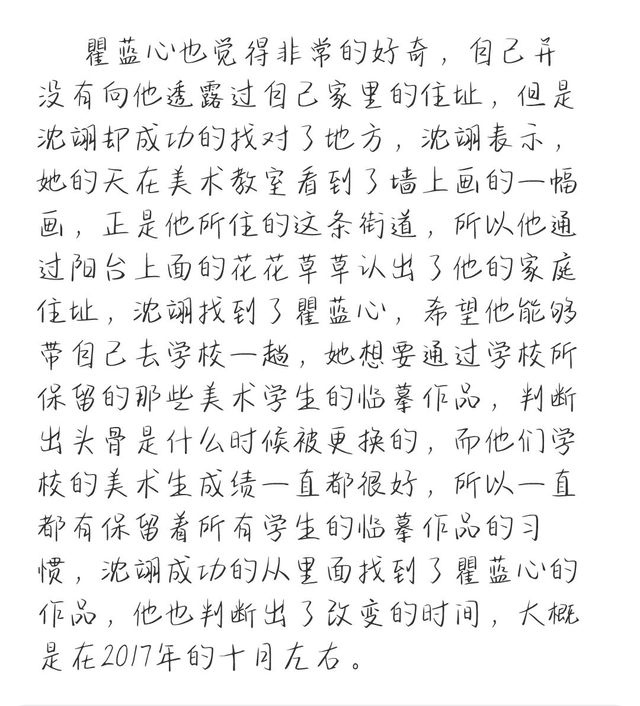 瞿蓝心也觉得非常的好奇，自己并
没有向他透露过自己家里的住址，但是
沈翊却成功的找对了地方，沈翊表示，
她的天在美术教室看到了墙上画的一幅
画，正是他所住的这条街道，所以他通
过阳台上面的花花草草认出了他的家庭
住址，沈翊找到了瞿蓝心，希望他能够
带自己去学校一趟，她想要通过学校所
保留的那些美术学生的临摹作品，判断
出头骨是什么时候被更换的，而他们学
校的美术生成绩一直都很好，所以一直
都有保留着所有学生的临摹作品的习
惯，沈翊成功的从里面找到了瞿蓝心的
作品，他也判断出了改变的时间，大概
是在2017年的十月左右。